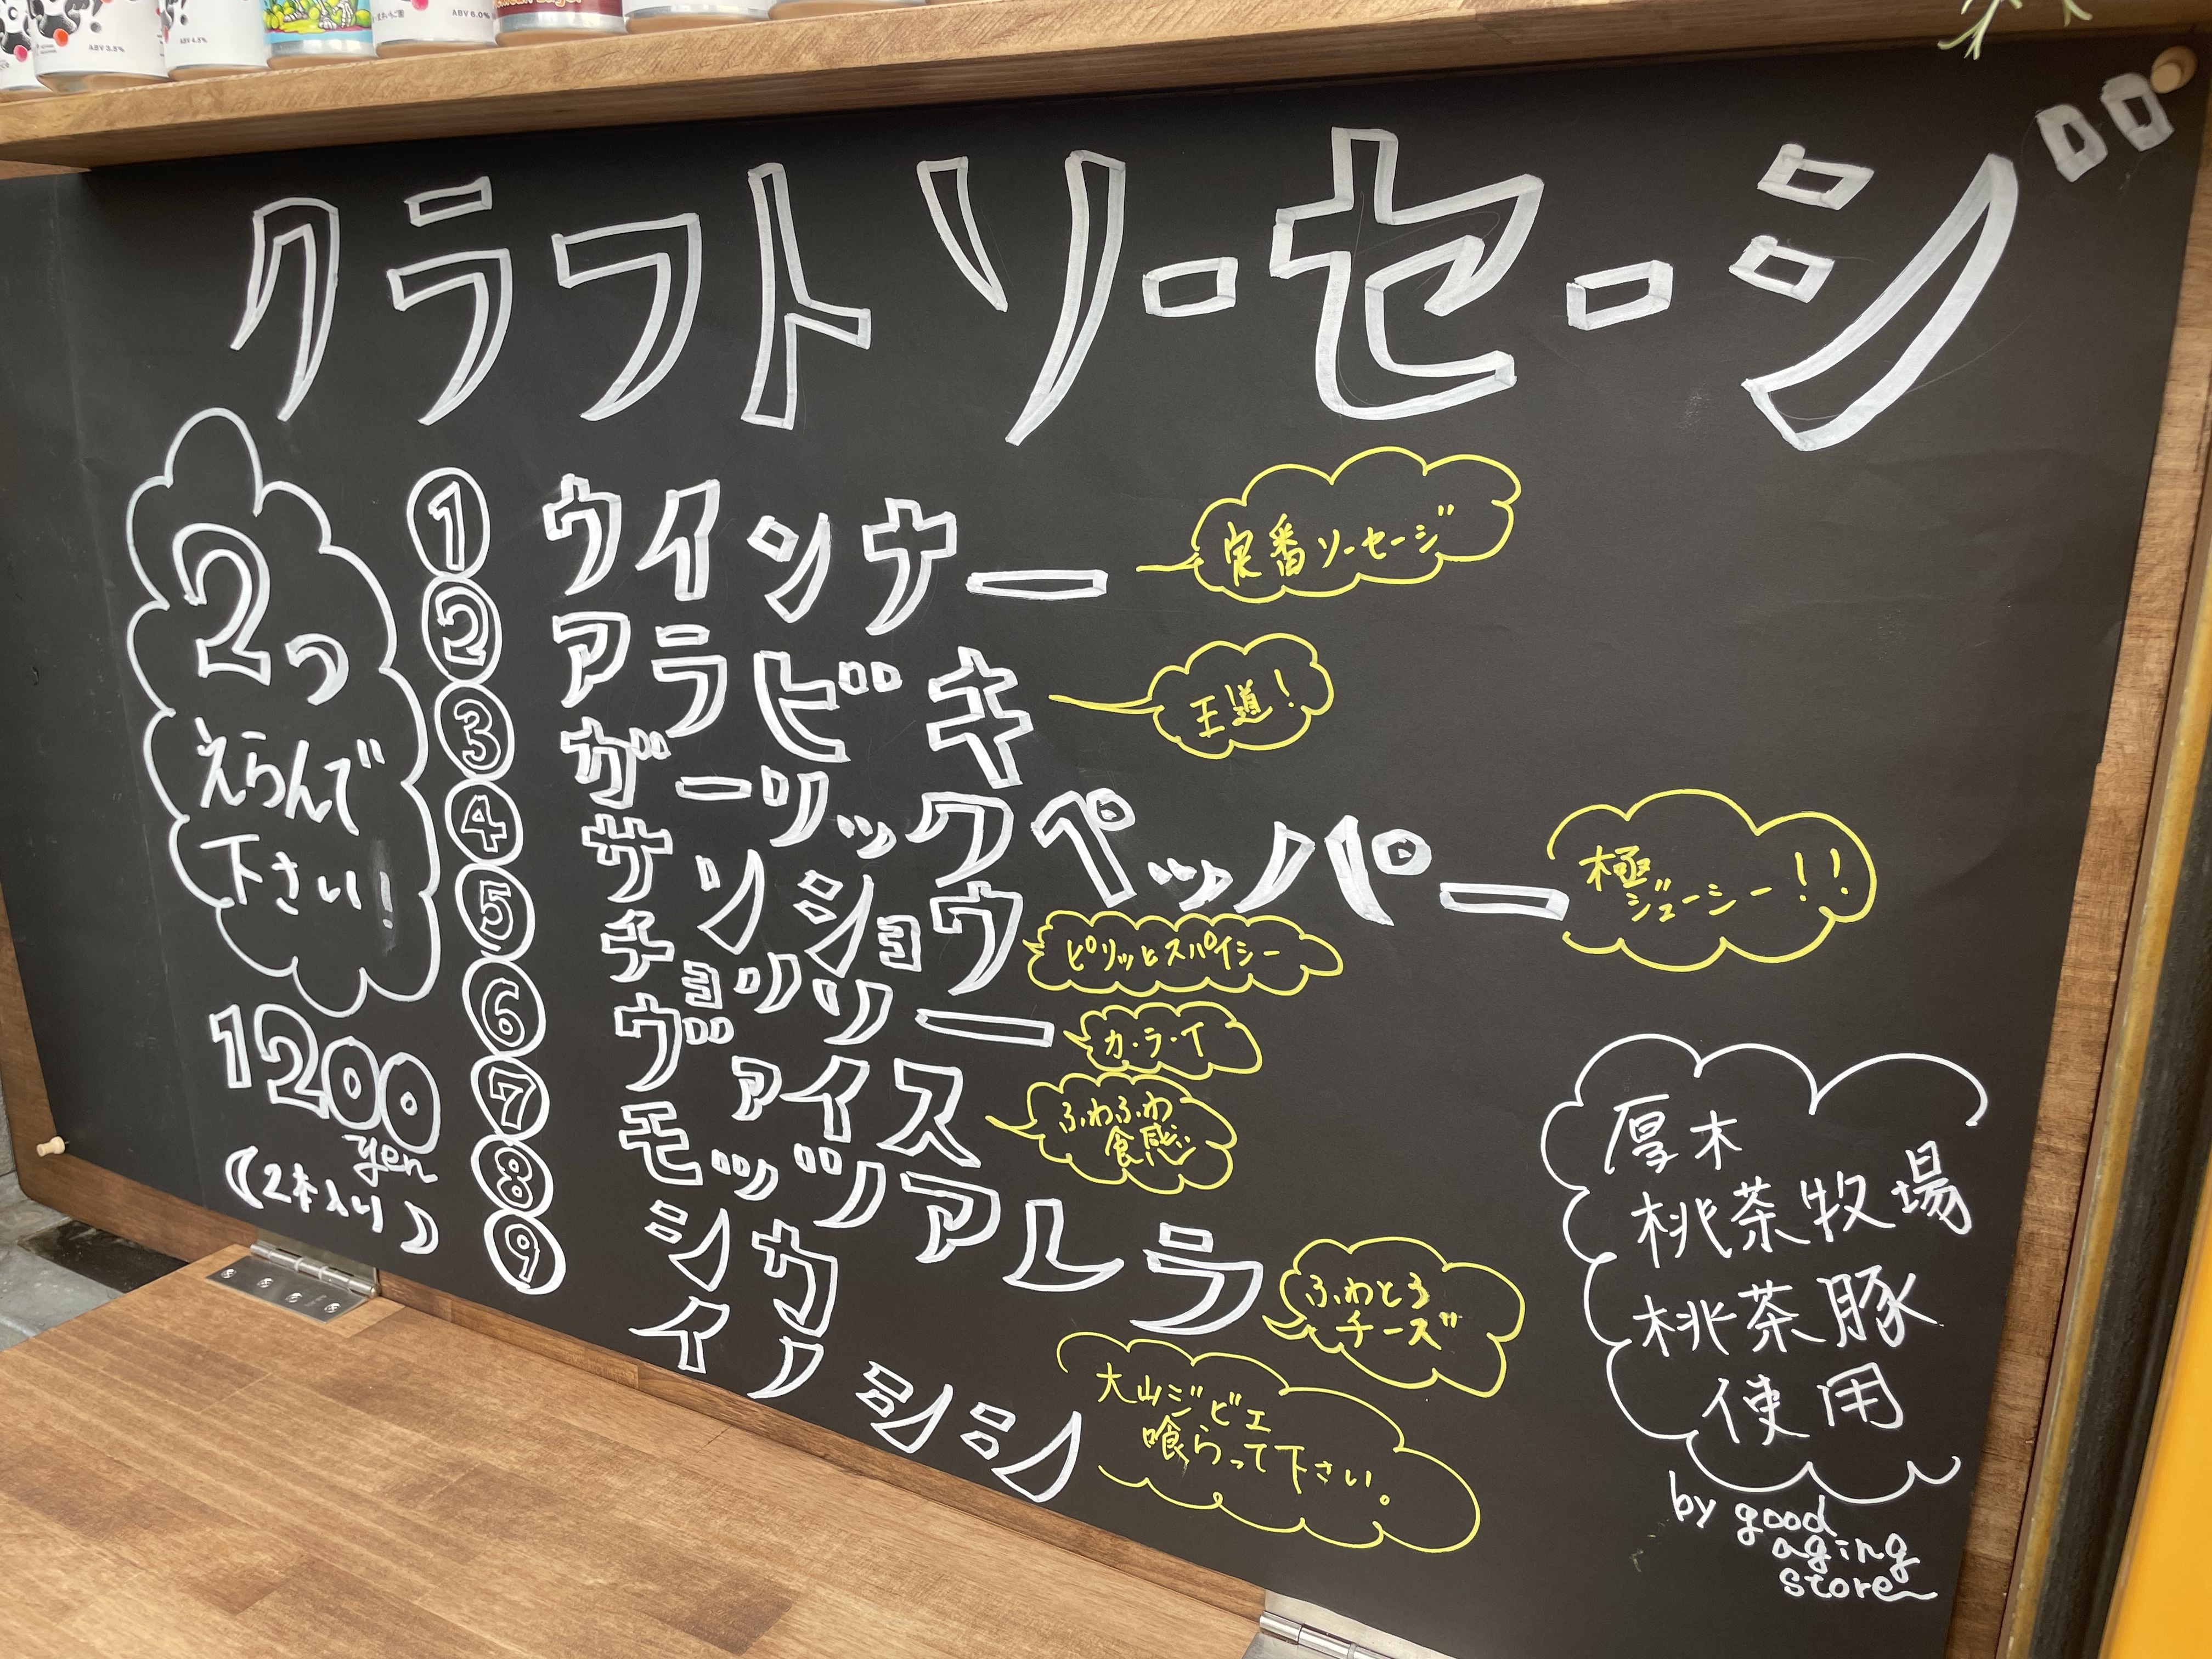 ABV 3.5%
ABV 4.5%
ABV 6.0%
クラフトソーセージ
2つ
えらんで
下さい!
1200
yen
(2本入り)
① ウインナー
定番ソーセージ
② アラビキ
王道!
③ ガーリックペッパー
極
ジューシー!!
④ サンショウ
ピリッとスパイシー
⑤ チョリソー
カ・ラ・イ
⑥ ヴァイス
ふわふわ
食感
⑦ モッツアレラ
ふわとろ
チーズ
⑧ シカ
⑨ イノシシ
大山ジビエ
喰らって下さい。
厚木
桃茶牧場
桃茶豚
使用
by good
aging
store